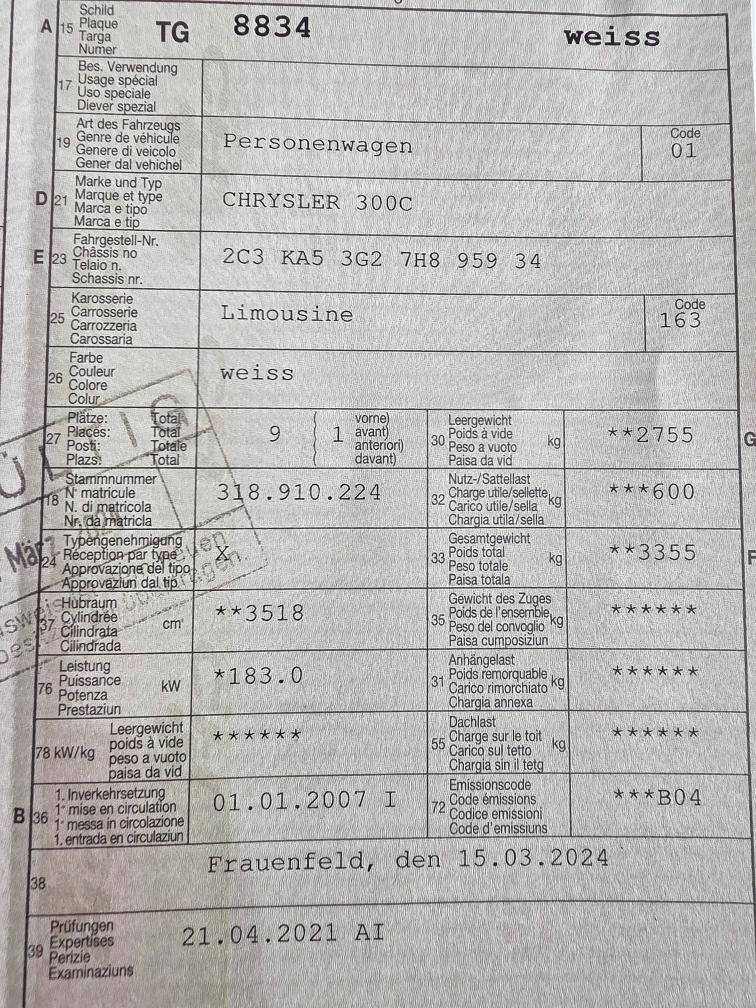 A 15 Schild
Plaque
Targa
Numer
TG 8834 weiss
17 Bes. Verwendung
Usage spécial
Uso speciale
Diever spezial
19 Art des Fahrzeugs
Genre de véhicule
Genere di veicolo
Gener dal vehichel
Personenwagen
Code
01
D 21 Marke und Typ
Marque et type
Marca e tipo
Marca e tip
CHRYSLER 300C
E 23 Fahrgestell-Nr.
Châssis no
Telaio n.
Schassis nr.
2C3 KA5 3G2 7H8 959 34
25 Karosserie
Carrosserie
Carrozzeria
Carossaria
Limousine
Code
163
26 Farbe
Couleur
Colore
Colur
weiss
27 Plätze: Total
Places: Total
Posti: Totale
Plazs: Total
9 ( 1 vorne)
avant)
anteriori)
davant)
30 Leergewicht
Poids à vide
Peso a vuoto
Paisa da vid
kg **2755
G
18 Stammnummer
N° matricule
N. di matricola
Nr. da matricla
318.910.224
32 Nutz-/Sattellast
Charge utile/sellette
Carico utile/sella
Chargia utila/sella
kg ***600
24 Typengenehmigung
Réception par type
Approvazione del tipo
Approvaziun dal tip
X
33 Gesamtgewicht
Poids total
Peso totale
Paisa totala
kg **3355
F
37 Hubraum
Cylindrée
Cilindrata
Cilindrada
cm³ **3518
35 Gewicht des Zuges
Poids de l'ensemble
Peso del convoglio
Paisa cumposiziun
kg ******
76 Leistung
Puissance
Potenza
Prestaziun
kW *183.0
31 Anhängelast
Poids remorquable
Carico rimorchiato
Chargia annexa
kg ******
78 kW/kg Leergewicht
poids à vide
peso a vuoto
paisa da vid
******
55 Dachlast
Charge sur le toit
Carico sul tetto
Chargia sin il tetg
kg ******
B 36 1. Inverkehrsetzung
1ᵉ mise en circulation
1ª messa in circolazione
1. entrada en circulaziun
01.01.2007 I
72 Emissionscode
Code émissions
Codice emissioni
Code d'emissiuns
***B04
38 Frauenfeld, den 15.03.2024
39 Prüfungen
Expertises
Perizie
Examinaziuns
21.04.2021 AI